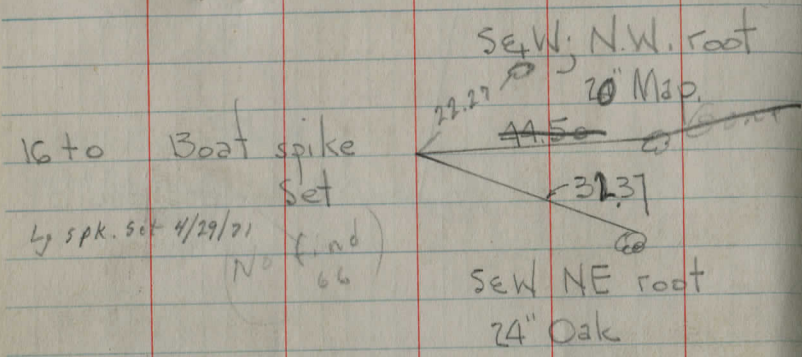 S&W; N.W. root
20" Map.
22.27
44.50
16+0 Boat spike
Set
31.37
Lg spk. Set 4/29/71
(No find
66)
S&W NE root
24" Oak